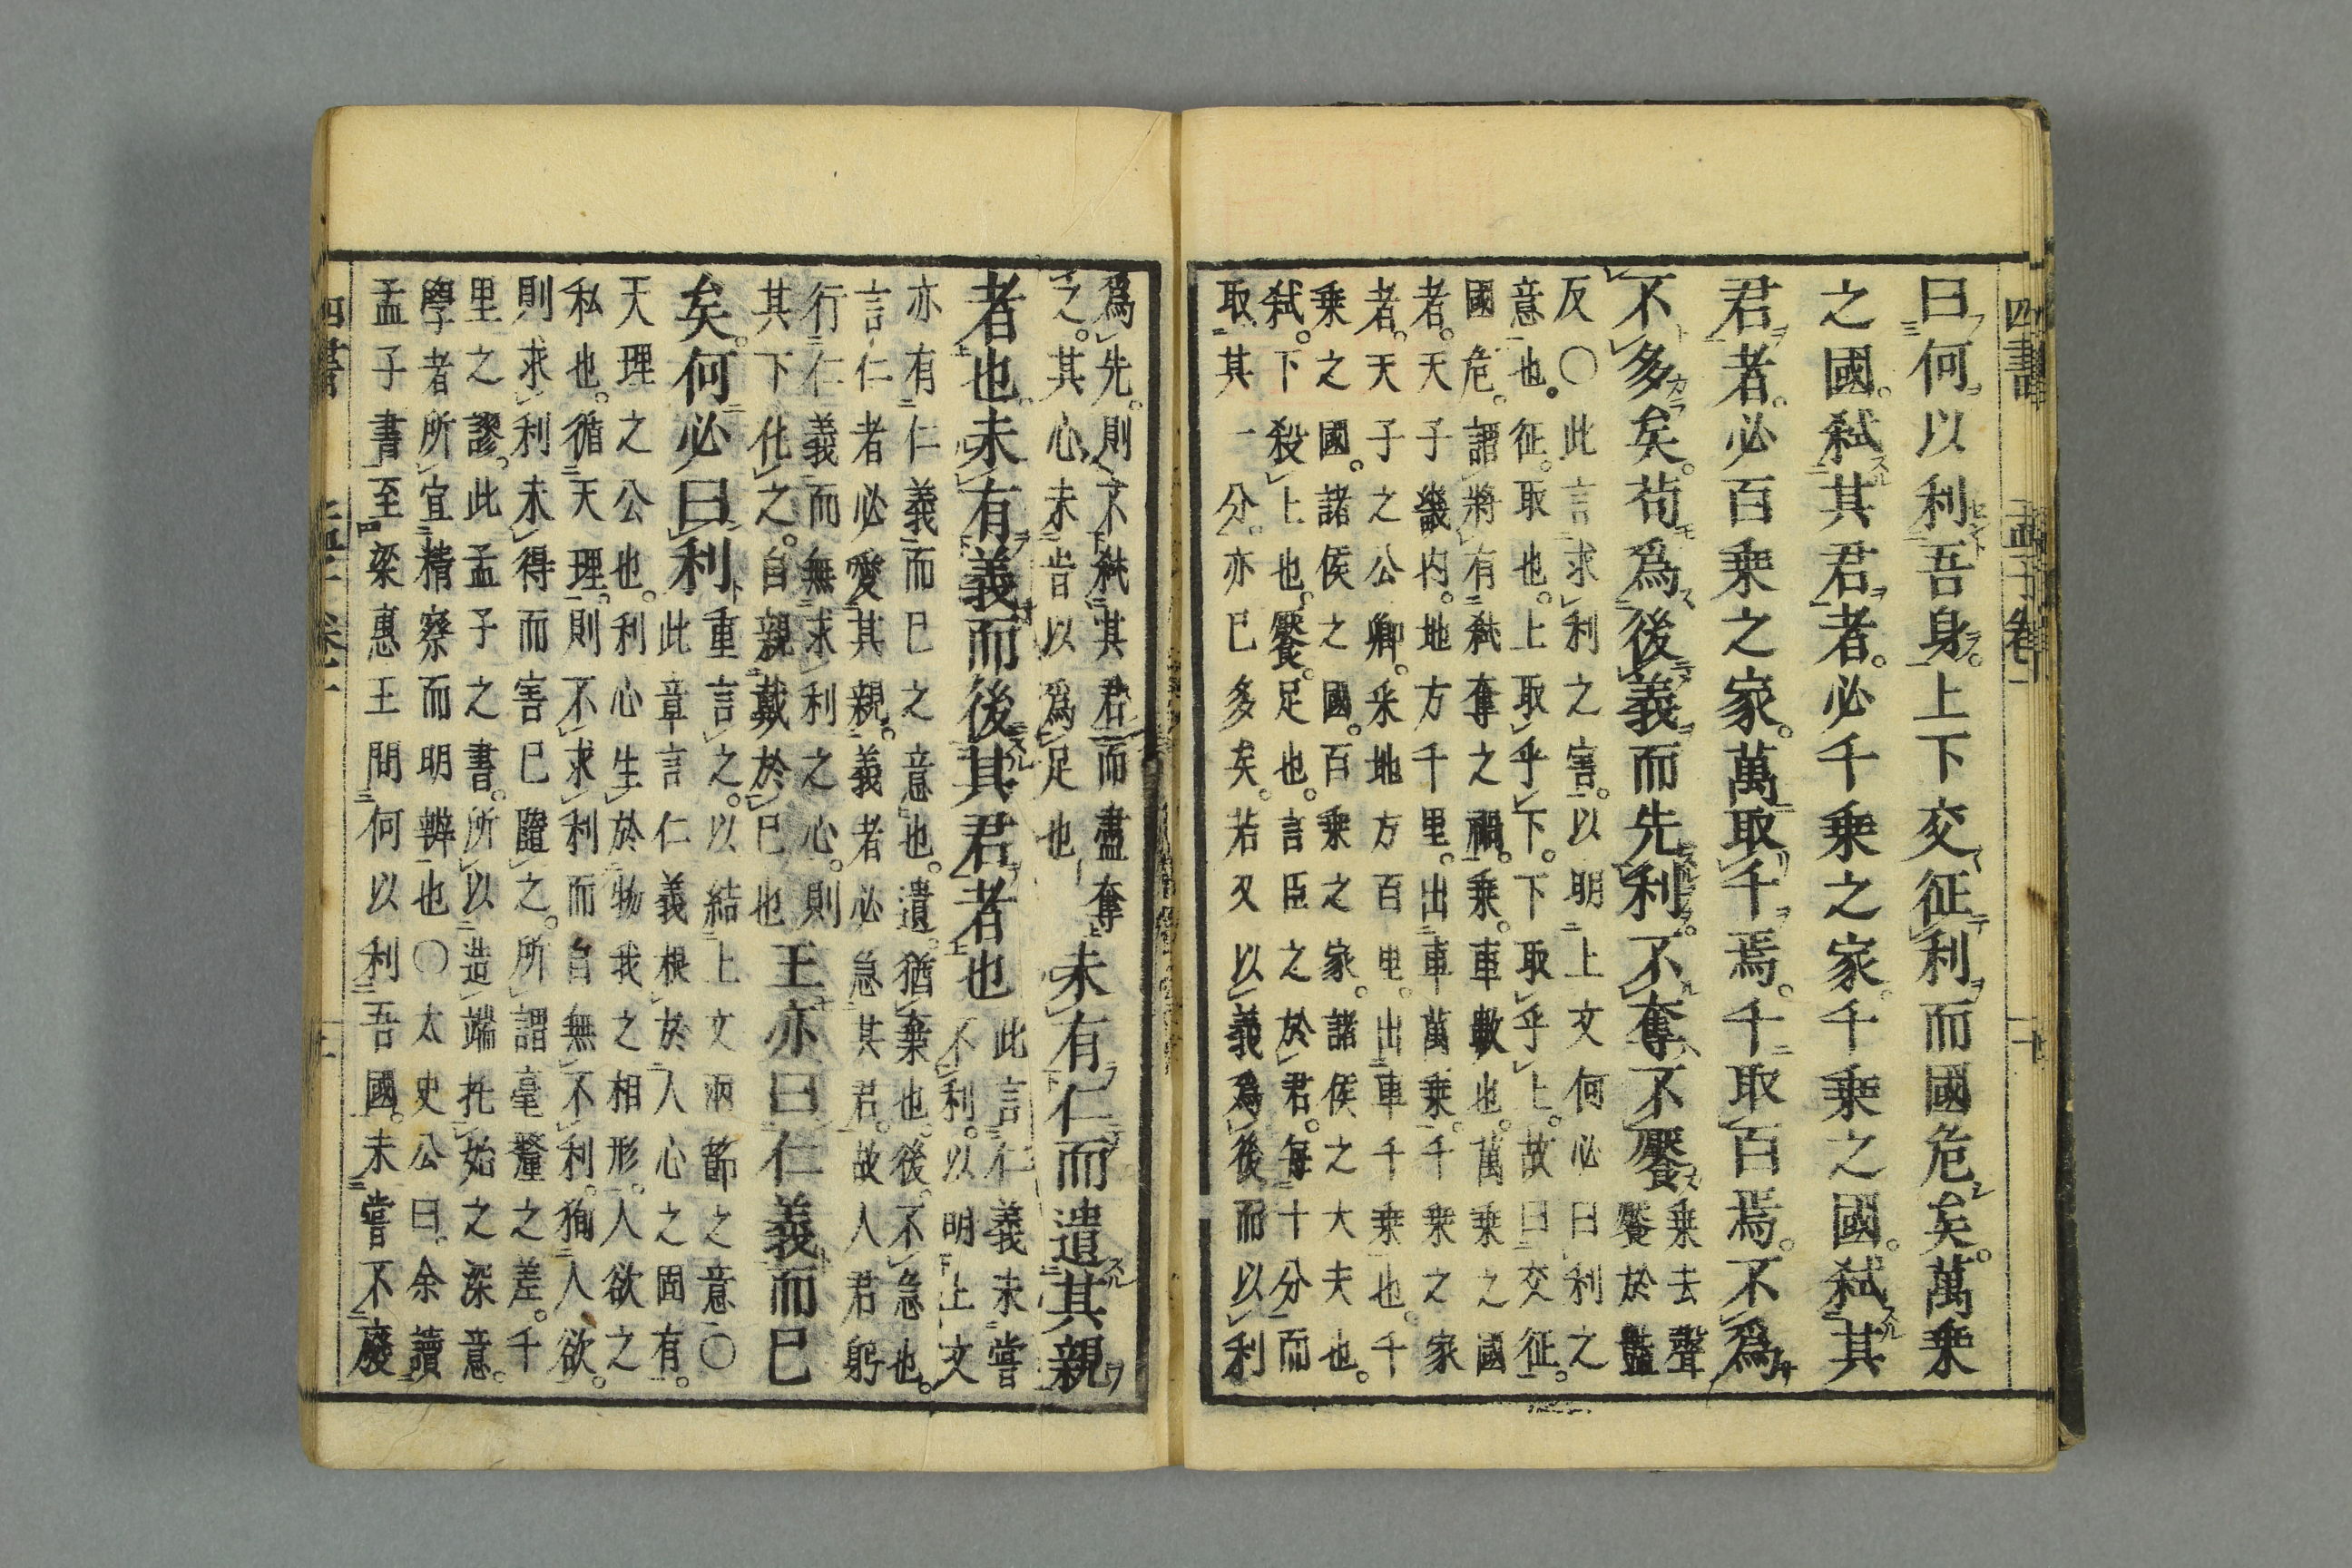 四書 孟子卷一 十
曰何以利吾身。上下交征利而國危矣。萬乗
之國。弑其君者。必千乗之家。千乗之國。弑其
君者。必百乗之家。萬取千焉。千取百焉。不爲
不多矣。苟爲後義而先利。不奪不饜
乗去聲
饜於豔
反○此言求利之害。以明上文何必曰利之
意也。征。取也。上取乎下。下取乎上。故曰交征。
國危。謂將有弑奪之禍。乗。車數也。萬乗之國
者。天子畿内。地方千里。出車萬乗。千乗之家
者。天子之公卿。采地方百里。出車千乗也。千
乗之國。諸侯之國。百乗之家。諸侯之大夫也。
弑。下殺上也。饜。足也。言臣之於君。毎十分而
取其一分。亦已多矣。若又以義爲後而以利
爲先。則不弑其君而盡奪
之。其心未肯以爲足也
未有仁而遺其親
者也。未有義而後其君者也
此言仁義未嘗
不利。以明上文
亦有仁義而已之意也。遺。猶棄也。後。不急也。
言仁者必愛其親。義者必急其君。故人君躬
行仁義而無求利之心。則
其下化之。自親戴於已也
王亦曰仁義而已
矣。何必曰利
重言之。以結上文兩節之意○
此章言仁義根於人心之固有。
天理之公也。利心生於物我之相形。人欲之
私也。循天理。則不求利而自無不利。狥人欲。
則求利未得而害已隨之。所謂毫釐之差。千
里之謬。此孟子之書。所以造端托始之深意。
學者所宜精察而明辨也○太史公曰。余讀
孟子書至梁惠王問何以利吾國。未嘗不廢
四書